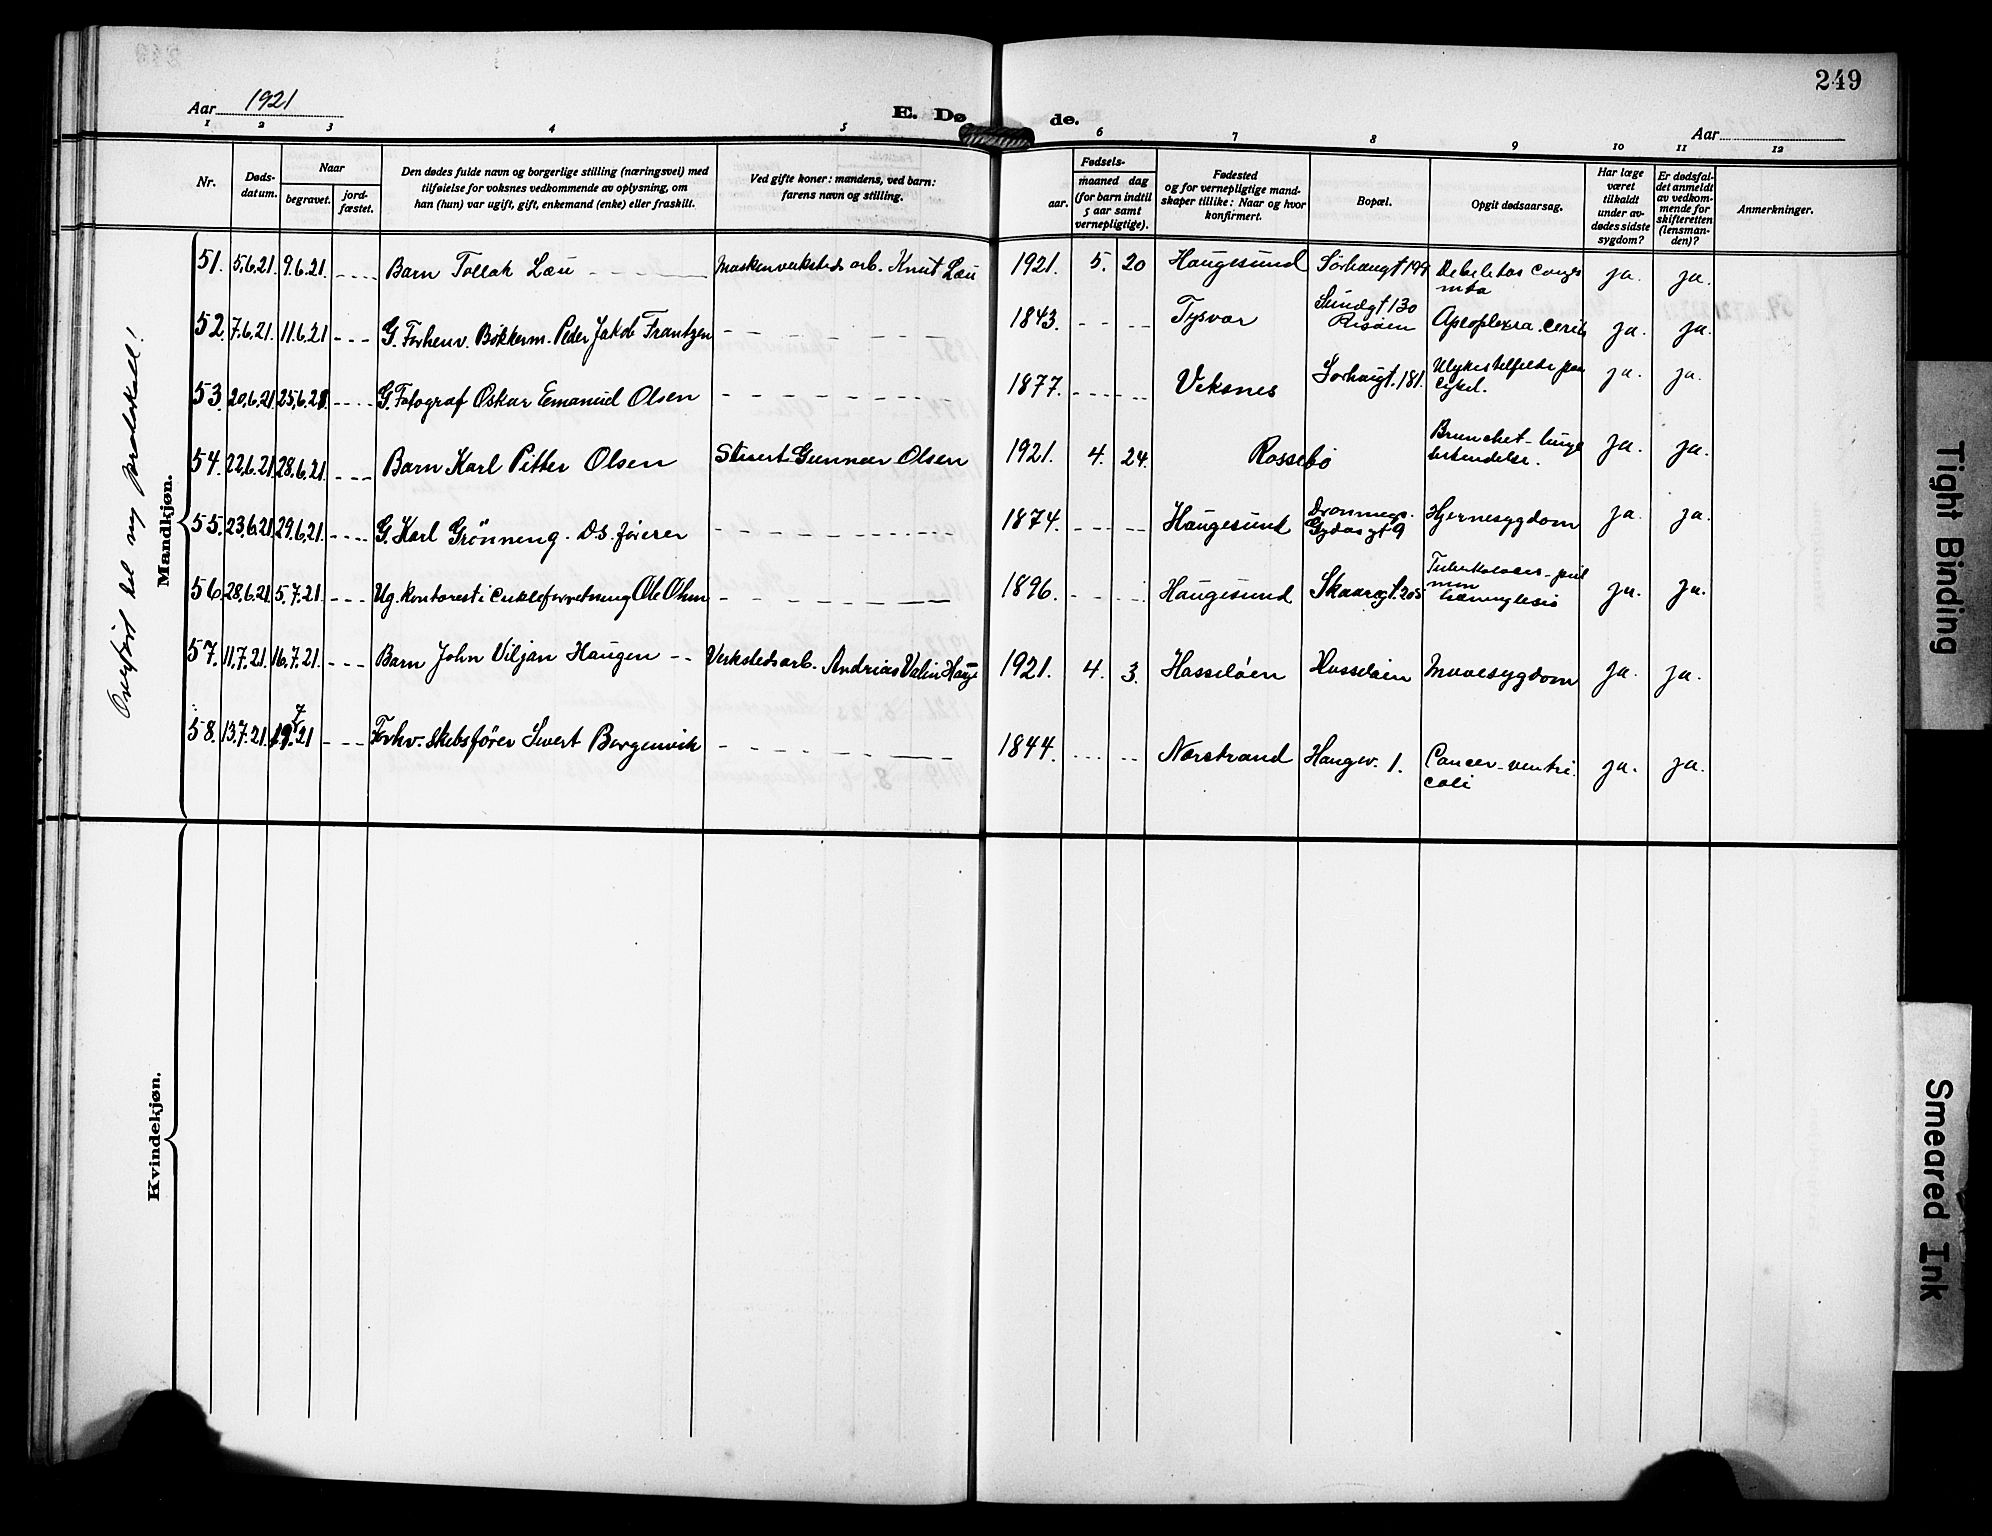 249
Aar 1921
E. Dø
de.
Aar
1 2 3 4 5 6 7 8 9 10 11 12
Nr.
Døds-
datum.
Naar
begravet.
jord-
fæstet.
Den dødes fulde navn og borgerlige stilling (næringsvei) med
tilføielse for voksnes vedkommende av oplysning, om
han (hun) var ugift, gift, enkemand (enke) eller fraskilt.
Ved gifte koner: mandens, ved barn:
farens navn og stilling.
Fødsels-
aar.
maaned dag
(for barn indtil
5 aar samt
vernepligtige).
Fødested
og for vernepligtige mand-
skaper tillike: Naar og hvor
konfirmert.
Bopæl.
Opgit dødsaarsag.
Har læge
været
tilkaldt
under av-
dødes sidste
sygdom?
Er dødsfal-
det anmeldt
av vedkom-
mende for
skifteretten
(lensman-
den)?
Anmerkninger.
Overført til ny protokoll!
Mandkjøn.
51. 5.6.21 9.6.21. Barn Tollak Lau Maskinverksteds arb. Knut Lau 1921. 5. 20 Haugesund Sørhaugt 199 ja. ja.
52. 7.6.21 11.6.21 G. Forhenv. Bøkkerm. Peder Jakob Frantzen 1843. Tysvær Sundgt 130
Risøen ja. ja.
53. 20.6.21 25.6.21. G. Fotograf Oskar Emanuel Olsen 1877. Veksnes Sørhaugt. 181. Ulykestilfelde paa
cykel. ja. ja.
54. 22.6.21 28.6.21. Barn Karl Pitter Olsen Stuert Gunnar Olsen 1921. 4. 24. Rossebø ja. ja.
55. 23.6.21 29.6.21. G. Karl Grönneng. D.S. förer 1874. Haugesund
Gydasgt 9 Hjernesygdom ja. ja.
56. 28.6.21 5.7.21. Ug. kontorest i Cykleforretning Ole Olsen 1896. Haugesund Skaaregt. 205 ja. ja.
57. 11.7.21. 16.7.21. Barn John Viljan Haugen Verkstedsarb. Andrias Valin 1921. 4. 3. Hasseløen Hasseløen Mavesygdom ja. ja.
58. 13.7.21. 19.7.21 Forhv. Skibsfører Sivert Borgenvik 1844. Nærstrand Haugv. 1. Cancer ventri
coli ja. ja.
Kvindekjøn.
Tight Binding
Smeared Ink